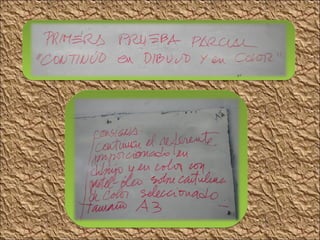 PRIMERA PRUEBA PARCIAL
"CONTINÚO en DIBUJO Y en COLOR"
consignas
Continuar el referente
proporcionado en
dibujo y en color con
pastel óleo sobre cartulina
de color seleccionado
tamaño A3